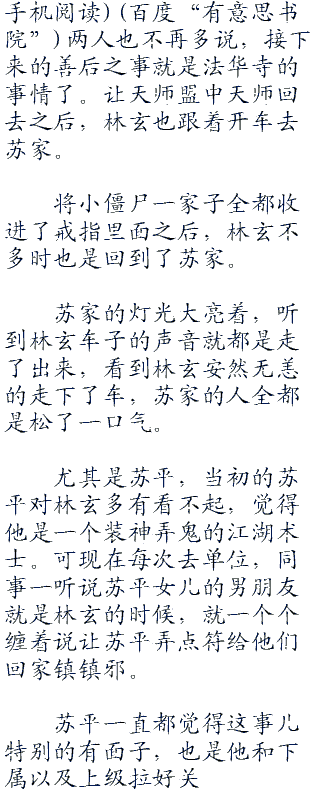 手机阅读)(百度“有意思书
院”)两人也不再多说，接下
来的善后之事就是法华寺的
事情了。让天师盟中天师回
去之后，林玄也跟着开车去
苏家。
将小僵尸一家子全都收
进了戒指里面之后，林玄不
多时也是回到了苏家。
苏家的灯光大亮着，听
到林玄车子的声音就都是走
了出来，看到林玄安然无恙
的走下了车，苏家的人全都
是松了一口气。
尤其是苏平，当初的苏
平对林玄多有看不起，觉得
他是一个装神弄鬼的江湖术
士。可现在每次去单位，同
事一听说苏平女儿的男朋友
就是林玄的时候，就一个个
缠着说让苏平弄点符给他们
回家镇镇邪。
苏平一直都觉得这事儿
特别的有面子，也是他和下
属以及上级拉好关